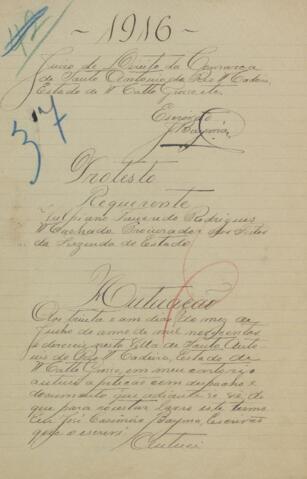 42
— 1916 —
Juizo de Direito da Comarca
de Santo Antonio do Rio Madeira,
Estado de Matto Grosso
37
Escrivão
Bayma
Protesto
Requerente
Rodrigues
Machado Procurador dos Feitos
da Fazenda do Estado
Autuação
Aos trinta e um dias do mez de
Julho do anno de mil novecentos
e deseseis nesta Villa de Santo Anto-
nio do Rio Madeira, Estado de
Matto Grosso, em meu cartorio
autuei a petição com despacho e
documento que adiante se vê, do
que para constar lavro este termo.
Eu José Casimiro Bayma, Escrivão
que o escrevi
Autuei